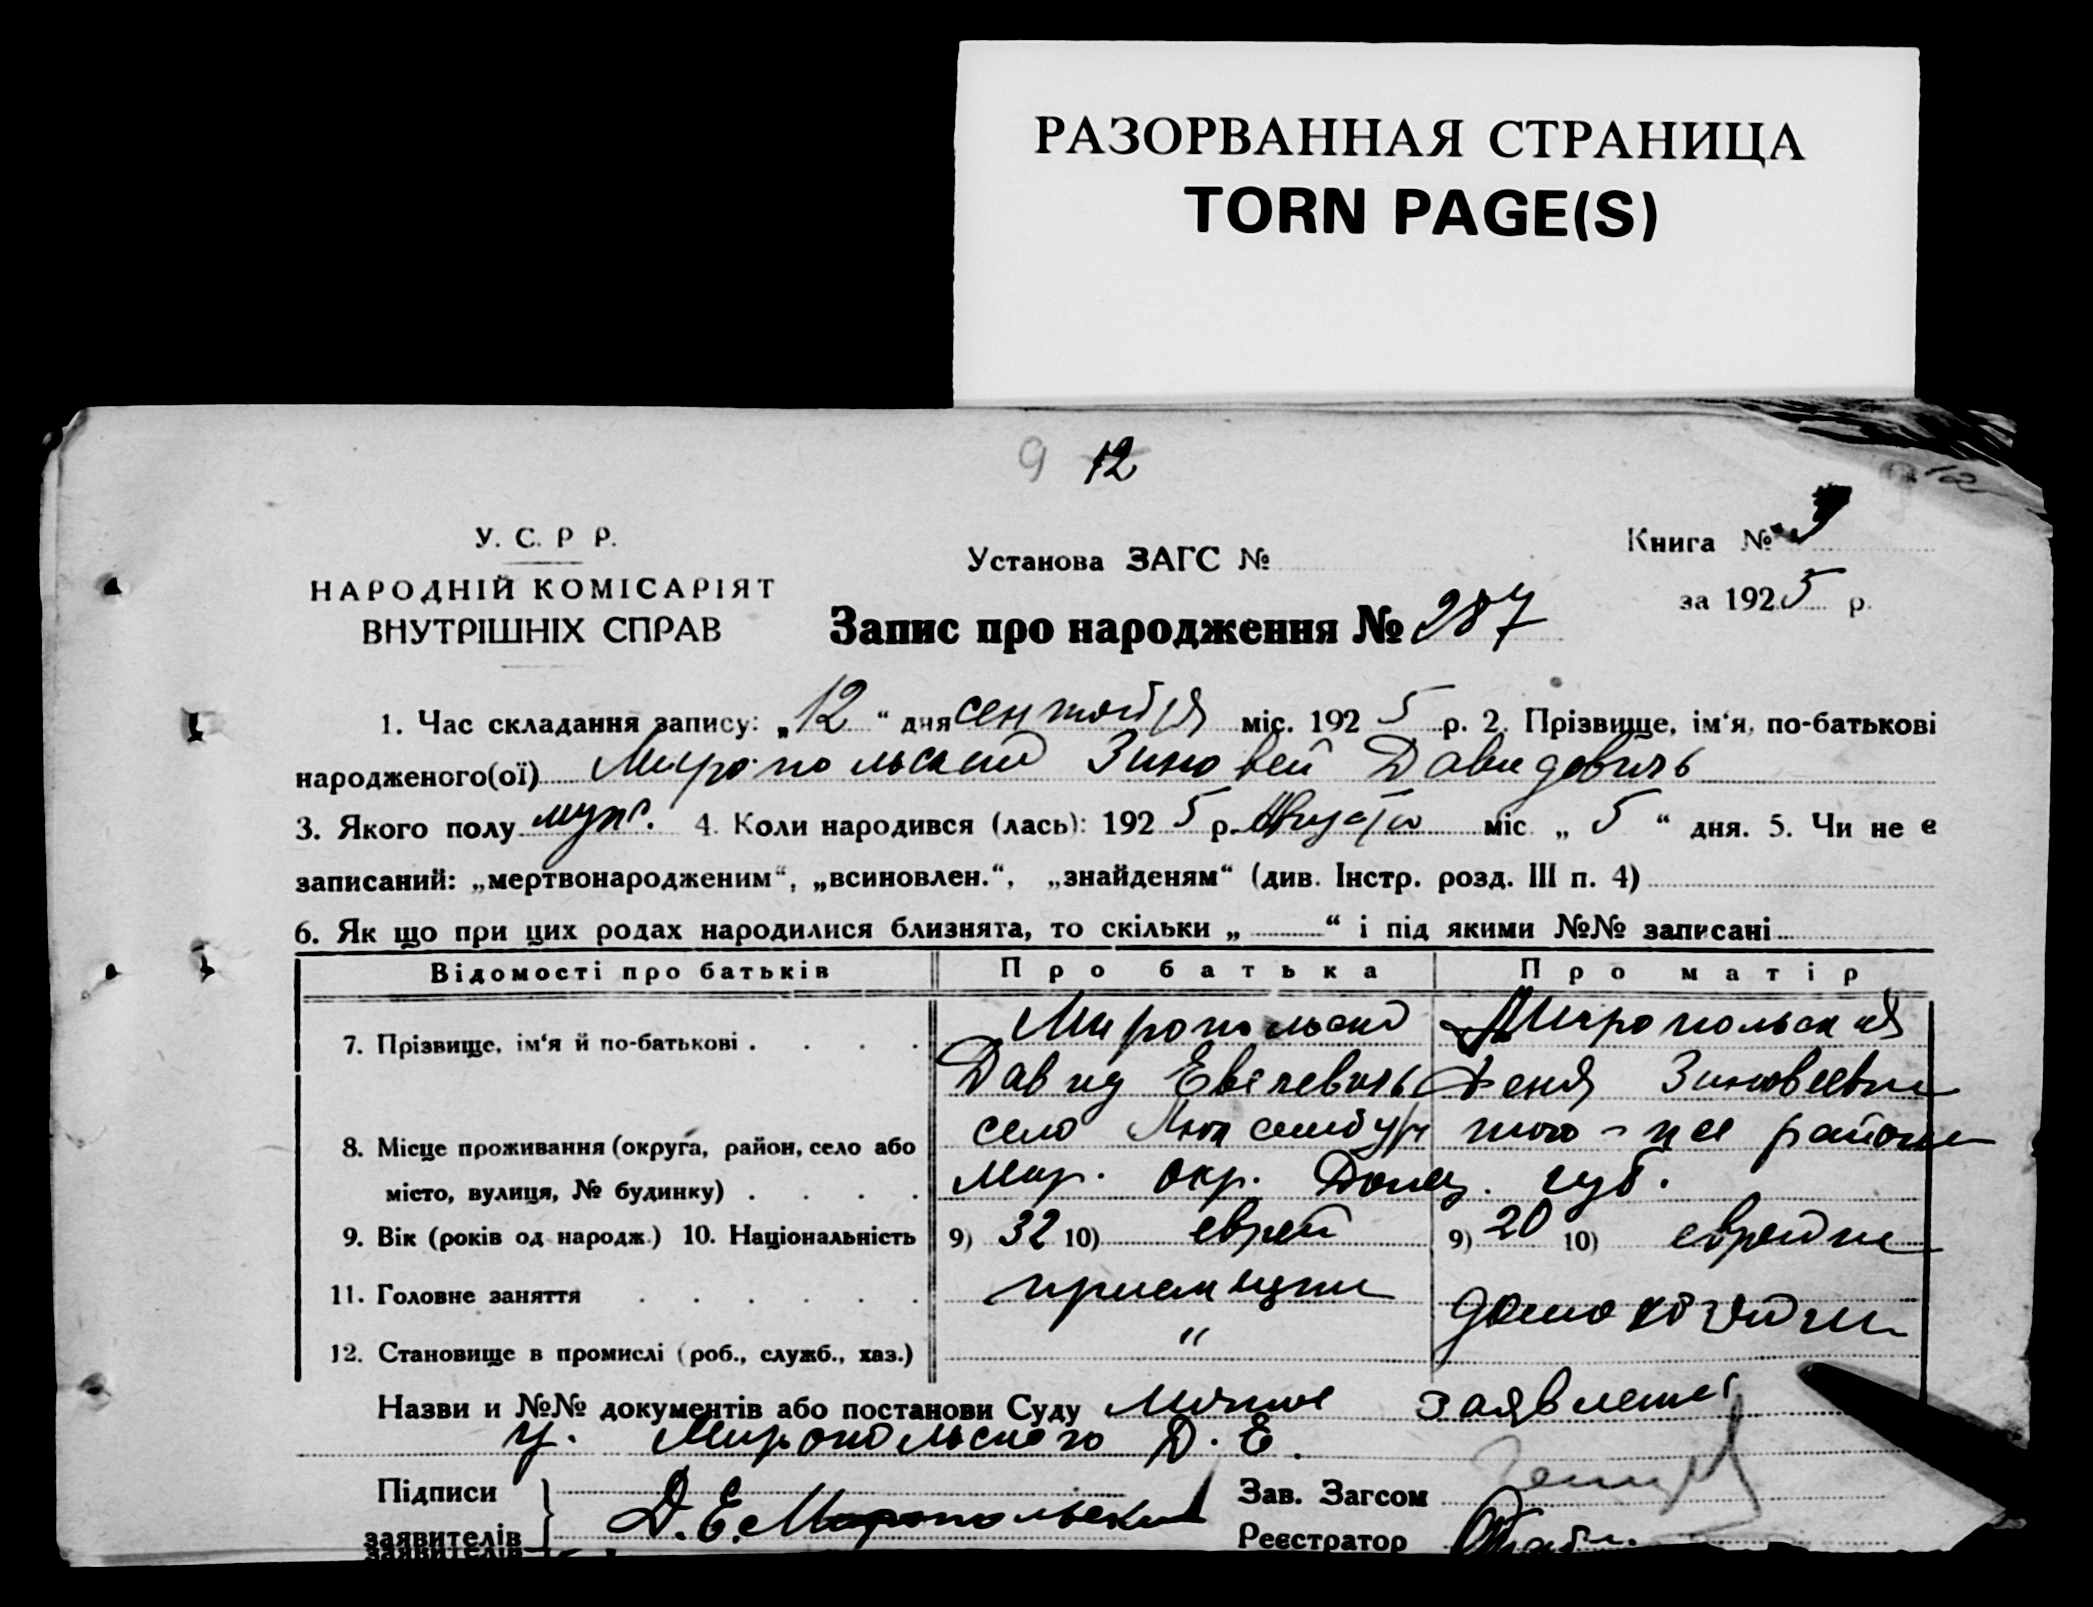 РАЗОРВАННАЯ СТРАНИЦА
TORN PAGE(S)
9 12
У. С. Р Р.
НАРОДНІЙ КОМІСАРІЯТ
ВНУТРІШНІХ СПРАВ
Установа ЗАГС №
Книга №
за 1925 р.
Запис про народження № 287
1. Час складання запису: „12“ дня сентября міс. 1925 р. 2. Прізвище, ім‘я, по-батькові
народженого(ої) Миропольский Зиновей Давидовичь
3. Якого полу муж. 4. Коли народився (лась): 1925 р. Августа міс „ 5 “ дня. 5. Чи не є
записаний: „мертвонародженим“, „всиновлен.“, „знайденям“ (див. Інстр. розд. III п. 4)
6. Як що при цих родах народилися близнята, то скільки „ “ і під якими №№ записані
Відомості про батьків Про батька Про матір
7. Прізвище, ім‘я й по-батькові . . . . Миропольский Миропольская
Давид Евелевичь Феня Зиновеевна
8. Місце проживання (округа, район, село або село Люксембург того-же района
місто, вулиця, № будинку) . . . . Мар. окр. Донец. губ.
9. Вік (років од народж.) 10. Національність 9) 32 10) еврей 9) 20 10) еврейка
11. Головне заняття . . . . . . домохозяйки
12. Становище в промислі (роб., служб., хаз.) "
Назви и №№ документів або постанови Суду Личное заявление
гр. Миропольского Д. Е.
Підписи
заявителів Д. Е. Миропольский
Зав. Загсом
Реєстратор